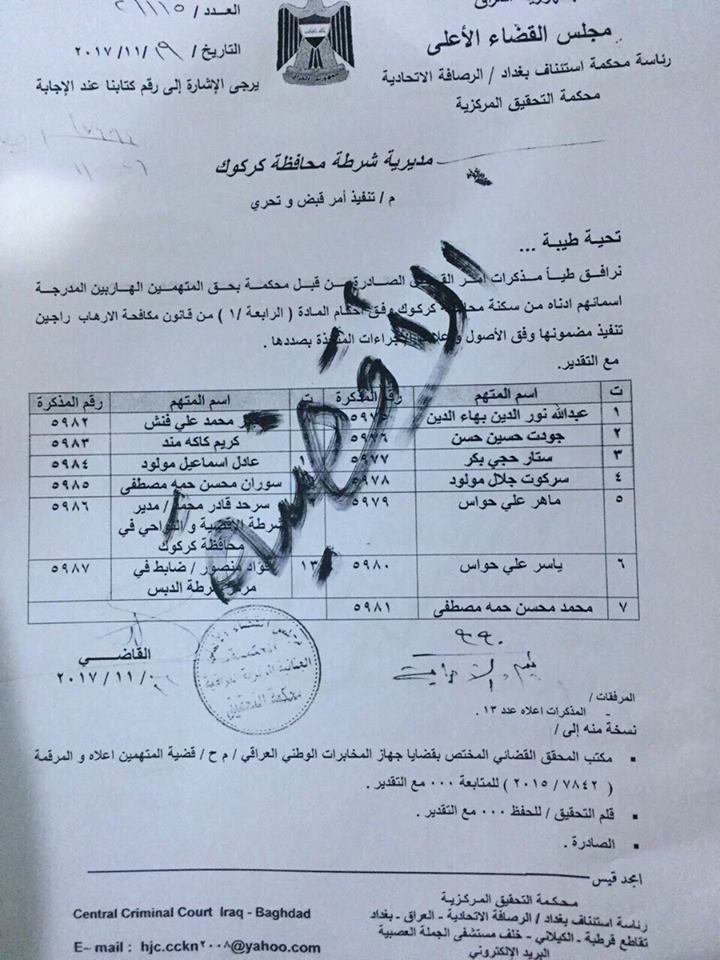 مجلس القضاء الأعلى
رئاسة محكمة استئناف بغداد / الرصافة الاتحادية
محكمة التحقيق المركزية
العدد / ٢١١١٥
التاريخ / ١٩ / ١١ / ٢٠١٧
يرجى الإشارة إلى رقم كتابنا عند الإجابة
مديرية شرطة محافظة كركوك
م / تنفيذ أمر قبض و تحري
تحية طيبة ...
نرافق طياً مذكرات القبض الصادرة من قبل محكمة بحق المتهمين الهاربين المدرجة
اسمائهم ادناه من سكنة كركوك وفق أحكام المادة ( الرابعة /١ ) من قانون مكافحة الارهاب راجين
تنفيذ مضمونها وفق الأصول بصددها .
مع التقدير.
ت اسم المتهم رقم المذكرة ت اسم المتهم رقم المذكرة
١ عبدالله نور الدين بهاء الدين ٥٩٧٥ محمد علي فنش ٥٩٨٢
٢ جودت حسين حسن ٥٩٧٦ كريم كاكه مند ٥٩٨٣
٣ ستار حجي بكر ٥٩٧٧ عادل اسماعيل مولود ٥٩٨٤
٤ سركوت جلال مولود ٥٩٧٨ سوران محسن حمه مصطفى ٥٩٨٥
٥ ماهر علي حواس ٥٩٧٩ سرحد قادر محمد / مدير ٥٩٨٦
شرطة الاقضية و النواحي في
محافظة كركوك
٦ ياسر علي حواس ٥٩٨٠ ١٣ منصور / ضابط في ٥٩٨٧
شرطة الدبس
٧ محمد محسن حمه مصطفى ٥٩٨١
القاضي
٢٠١٧/١١/
محكمة التحقيق
المرفقات /
- المذكرات اعلاه عدد ١٣ .
نسخة منه إلى /
▪ مكتب المحقق القضائي المختص بقضايا جهاز المخابرات الوطني العراقي / م ح / قضية المتهمين اعلاه و المرقمة
( ٧٨٤٢ / ٢٠١٥ ) للمتابعة ٠٠٠ مع التقدير .
▪ قلم التحقيق / للحفظ ٠٠٠ مع التقدير .
▪ الصادرة .
امجد قيس
محكمة التحقيق المركزية
رئاسة استئناف بغداد / الرصافة الاتحادية - العراق - بغداد
تقاطع قرطبة - الكيلاني - خلف مستشفى الجملة العصبية
البريد الإلكتروني
Central Criminal Court Iraq - Baghdad
E- mail : hjc.cckn٢٠٠٨@yahoo.com